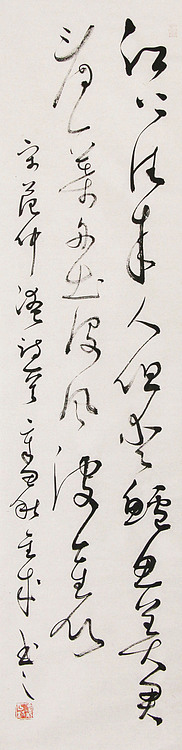 江上往來人但愛鱸魚美君
看一葉舟出沒風波裏
宋范仲淹詩 秋 書之